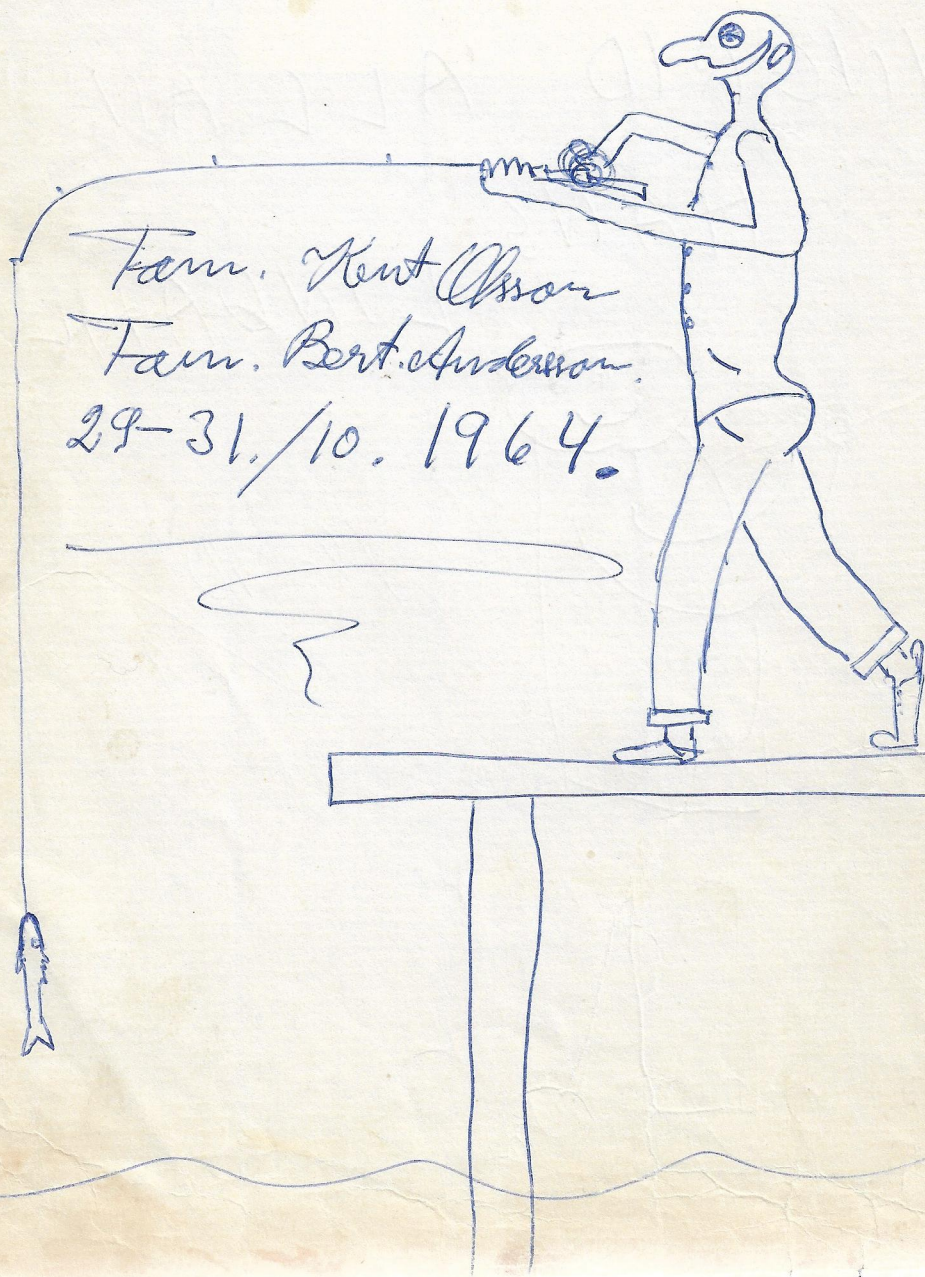 Fam. Kent Olsson
Fam. Bert. Andersson.
29-31./10. 1964.